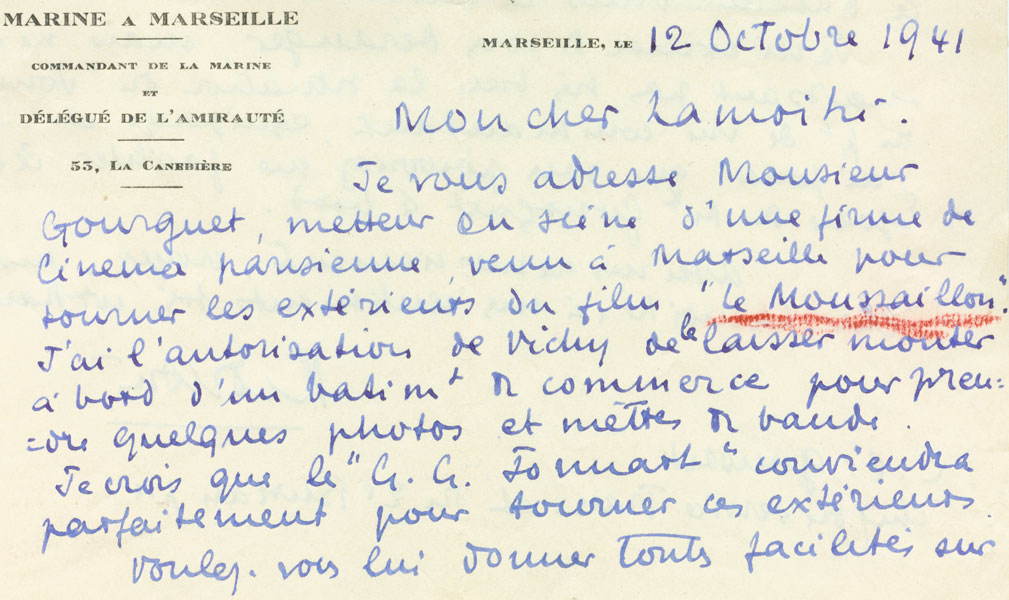 MARINE A MARSEILLE
COMMANDANT DE LA MARINE
ET
DÉLÉGUÉ DE L'AMIRAUTÉ
53, LA CANEBIÈRE
MARSEILLE, LE 12 Octobre 1941
Mon cher
Je vous adresse Monsieur
Gourguet, metteur en scène d'une firme de
Cinéma parisienne venu à Marseille pour
tourner les extérieurs du film "le Moussaillon".
J'ai l'autorisation de Vichy de le laisser monter
à bord d'un batimt de commerce pour pren=
=dre quelques photos et mètres de bande.
Je crois que le "G. G. " conviendra
parfaitement pour tourner ces extérieurs.
Voulez-vous lui donner toutes facilités sur